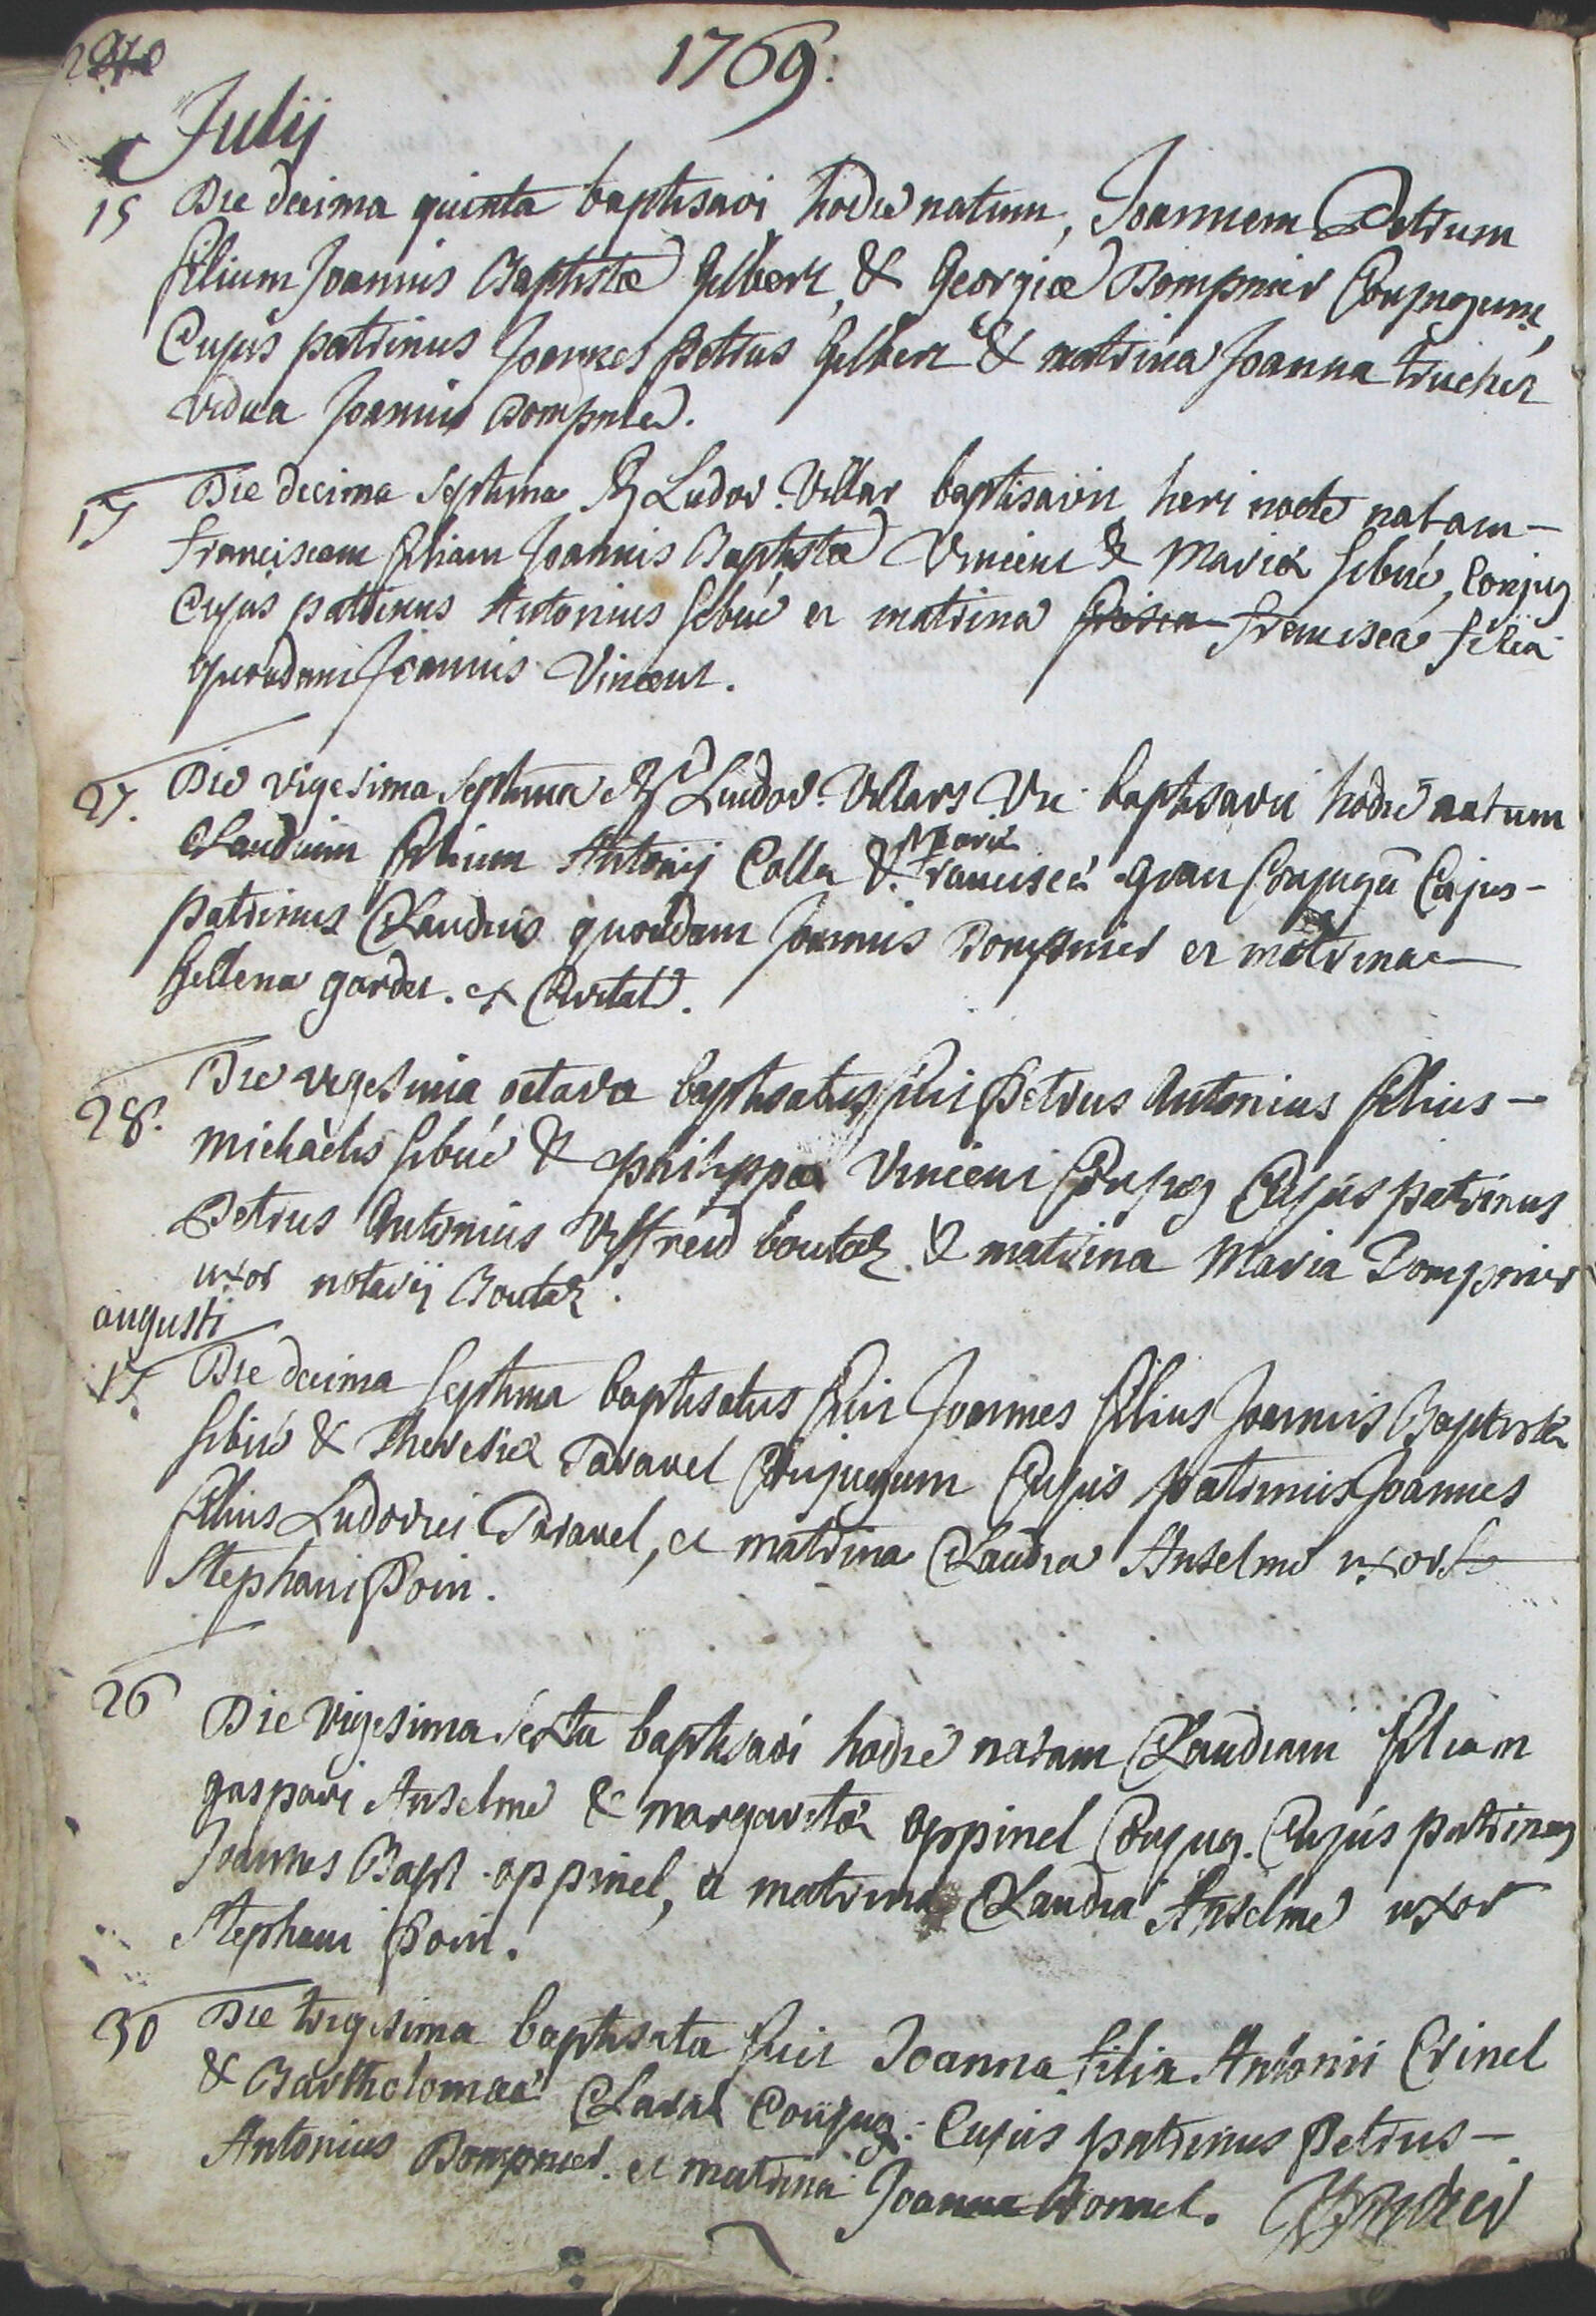 1769.
Julij
15 Die decima quinta baptisavi hodie natum, Joannem Petrum
filium Joannis Baptistæ Gilbert, & Georgiæ Dompnier Conjugum,
Cujus patrinus Joannes Petrus Gilbert & matrina Joanna truchet
vidua Joannis Dompnier.
17 Die decima septima Rd Ludov. Villar baptisavit heri nocte natam –
Franciscam filiam Joannis Baptistæ Vincent & Mariæ sibué, Conjug
Cujus patrinus Antonius sibué et matrina Francisca filia
quondam Joannis Vincent.
27. Die vigesima septima Rd Ludov. Villars Vic. baptisavit hodie natum
Claudium filium Antonij Colla & Mariæ Franciscæ gran Conjugū Cujus –
patrinus Claudius quondam Joannis Dompnier et matrina –
hellena gardet. ex Civitate.
28. Die vigesima octava baptisatus fuit Petrus Antonius filius –
Michaelis sibué & philippæ Vincent Conjug Cujus patrinus
Petrus Antonius Viffreid boutaz. & matrina Maria Dompnier
uxor notarij Boutaz.
augusti
17. Die decima septima baptisatus fuit Joannes filius Joannis Baptistæ
sibué & Theresiæ Taravel Conjugum Cujus patrinus Joannes
filius Ludovici Taravel, et matrina Claudia Anselme uxor
Stephani Boin.
26 Die vigesima sexta baptisavi hodie natam Claudiam filiam
gaspari Anselme & margaritæ oppinel Conjug. Cujus patrinus
Joannes Bapt. oppinel, et matrina Claudia Anselme uxor
Stephani Boin.
30 Die trigesima baptisata fuit Joanna filia Antonii Crinel
& Bartholomeæ Claraz Conjug. Cujus patrinus Petrus –
Antonius Dompnier. et matrina Joanna Bonnel.